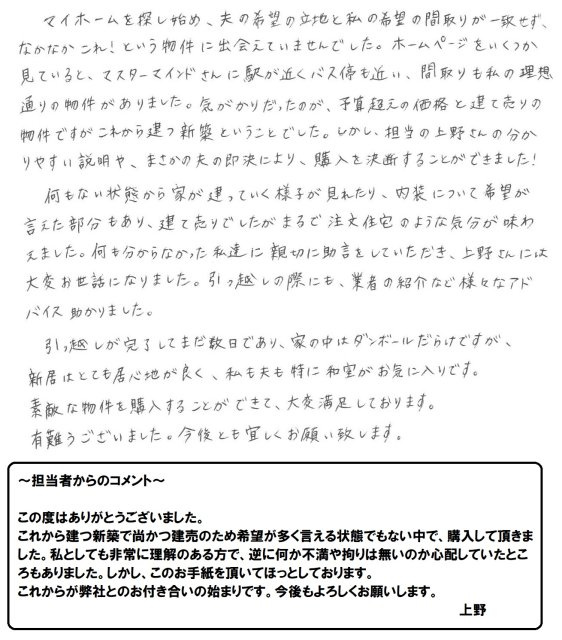 マイホームを探し始め、夫の希望の立地と私の希望の間取りが一致せず、
なかなかこれ!という物件に出会えていませんでした。ホームページをいくつか
見ていると、マスターマインドさんに駅が近くバス停も近い、間取りも私の理想
通りの物件がありました。気がかりだったのが、予算超えの価格と建て売りの
物件ですがこれから建つ新築ということでした。しかし、担当の上野さんの分か
りやすい説明や、まさかの夫の即決により、購入を決断することができました!
何もない状態から家が建っていく様子が見れたり、内装について希望が
言えた部分もあり、建て売りでしたがまるで注文住宅のような気分が味わ
えました。何も分からなかった私達に親切に助言をしていただき、上野さんには
大変お世話になりました。引っ越しの際にも、業者の紹介など様々なアド
バイス助かりました。
引っ越しが完了してまだ数日であり、家の中はダンボールだらけですが、
新居はとても居心地が良く、私も夫も特に和室がお気に入りです。
素敵な物件を購入することができて、大変満足しております。
有難うございました。今後とも宜しくお願い致します。
～担当者からのコメント～
この度はありがとうございました。
これから建つ新築で尚かつ建売のため希望が多く言える状態でもない中で、購入して頂きま
した。私としても非常に理解のある方で、逆に何か不満や拘りは無いのか心配していたとこ
ろもありました。しかし、このお手紙を頂いてほっとしております。
これからが弊社とのお付き合いの始まりです。今後もよろしくお願いします。
上野